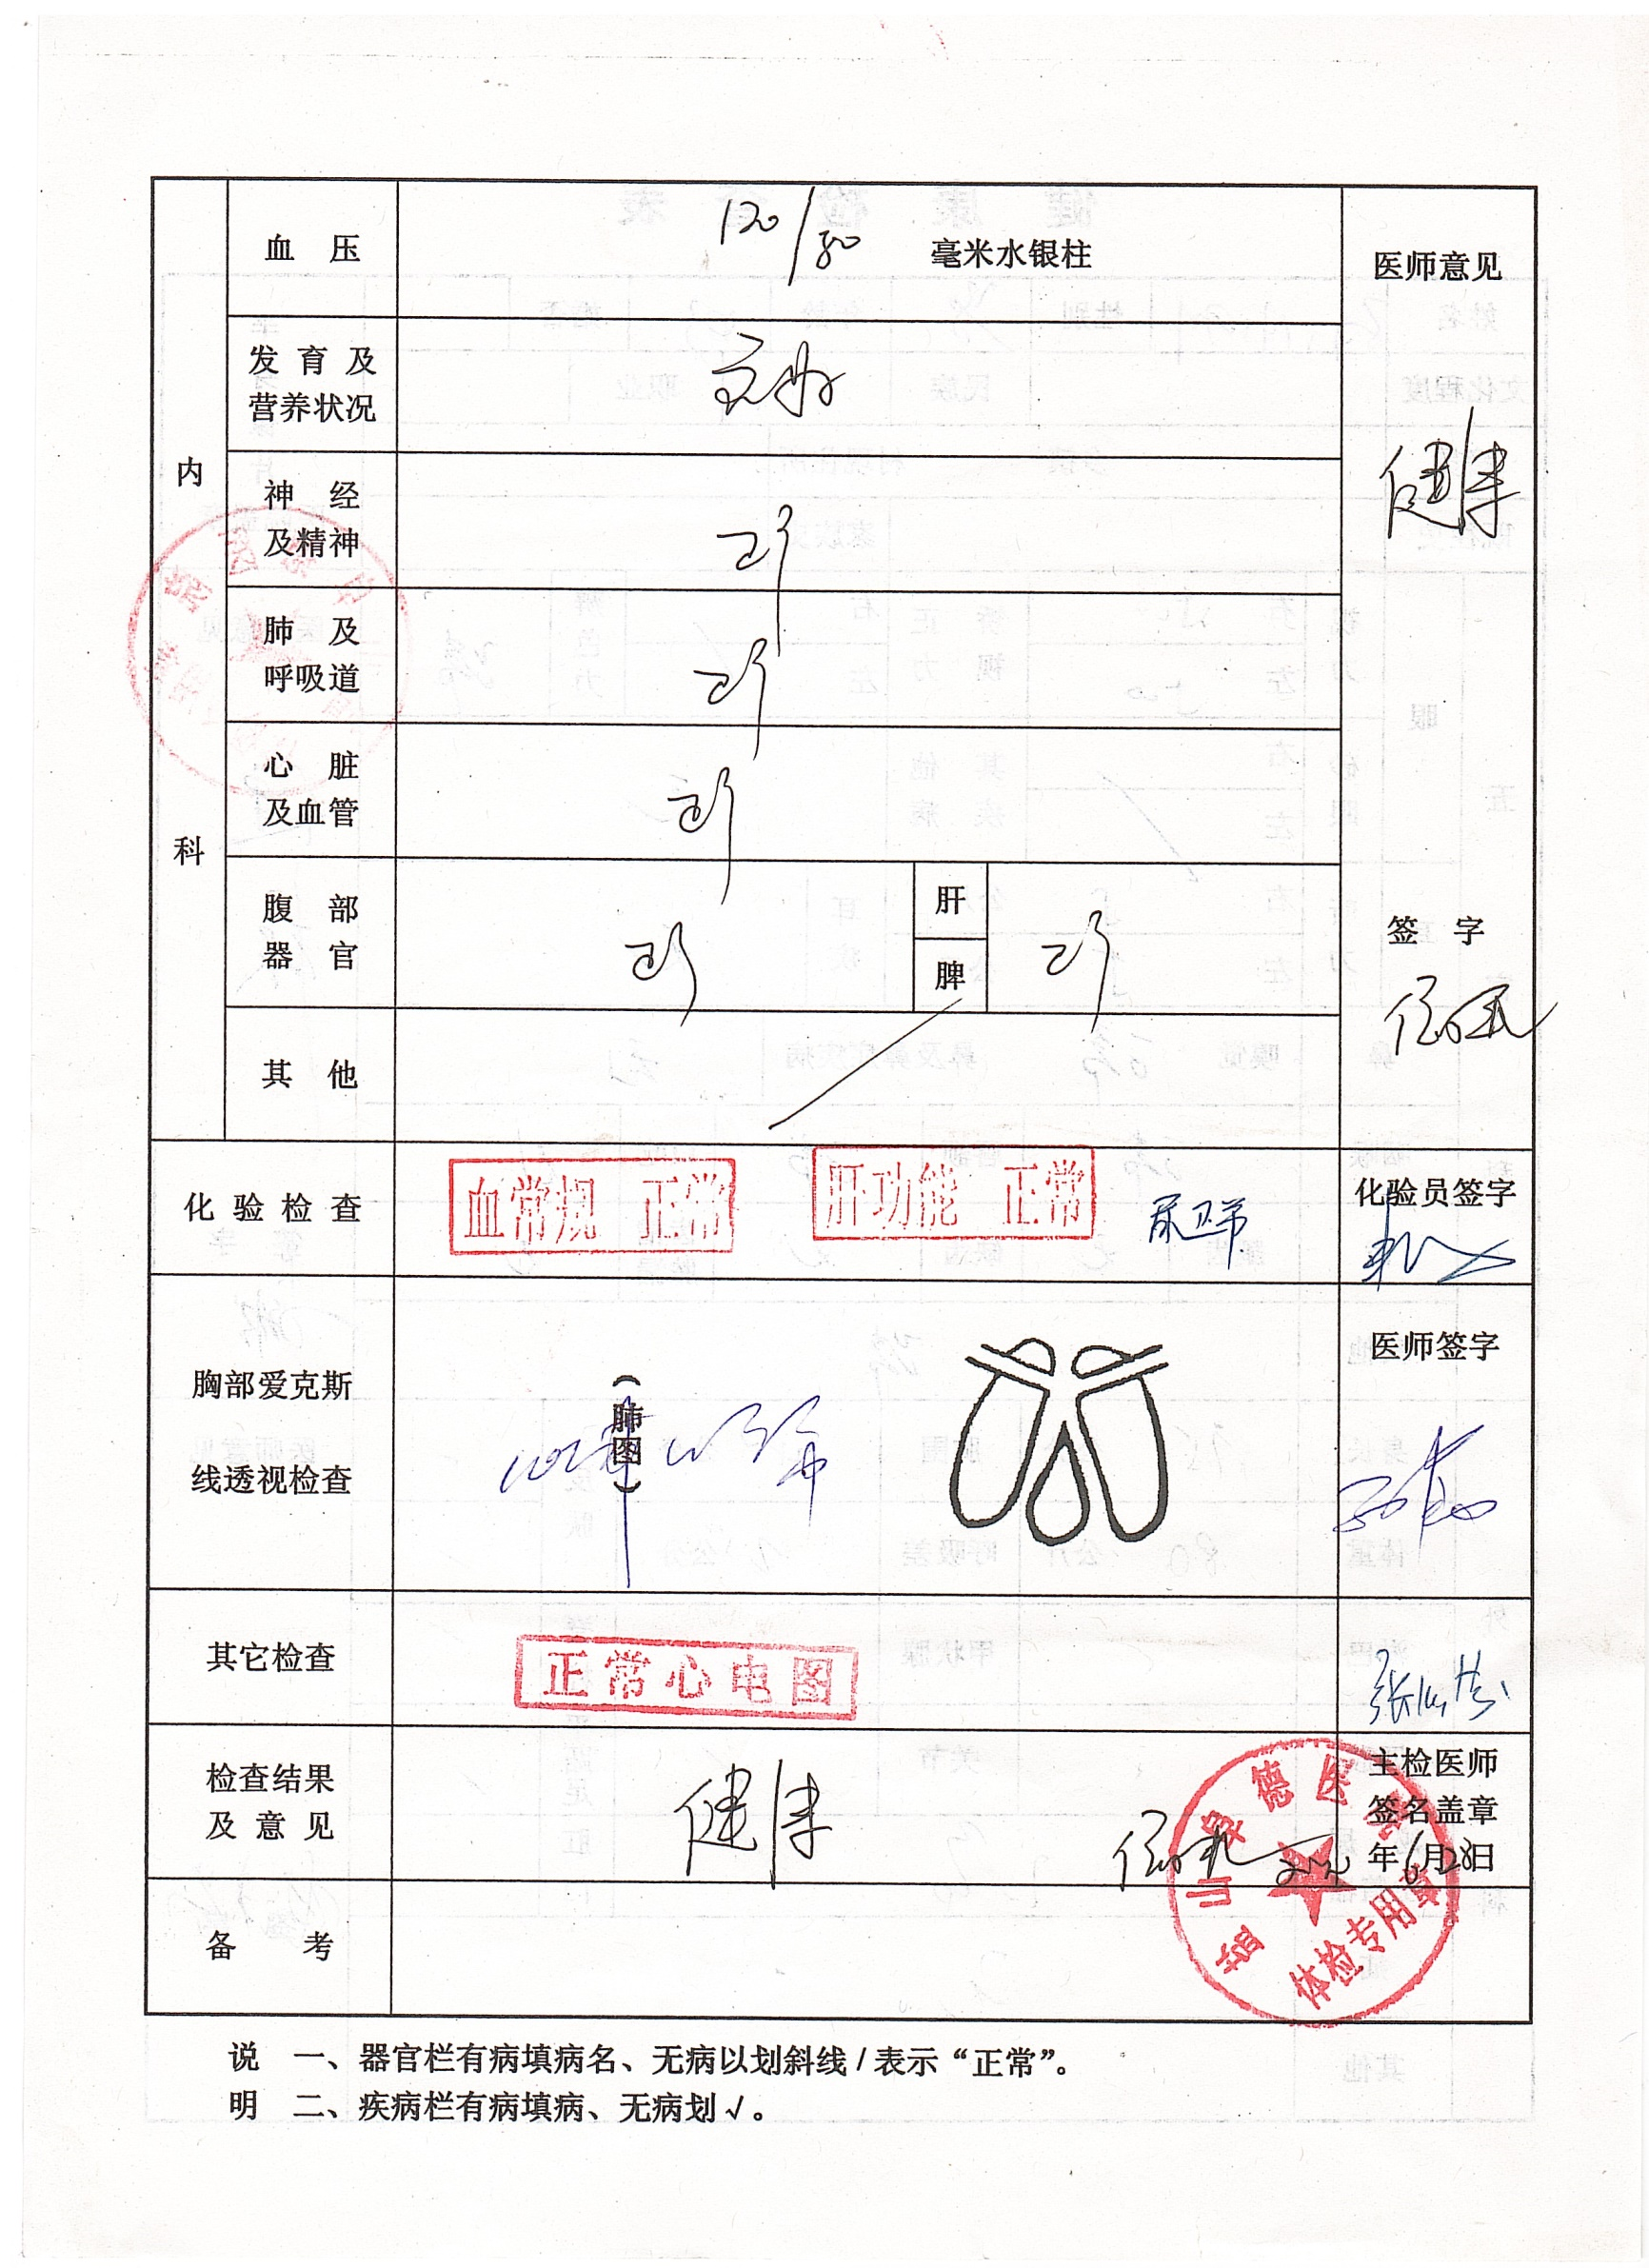 血 压
120/80 毫米水银柱
医师意见
发 育 及
营养状况
良好
健康
内
科
神 经
及精神
正常
肺 及
呼吸道
正常
心 脏
及血管
正常
腹 部
器 官
正常
肝
脾
正常
签 字
其 他
/
化 验 检 查
血常规 正常
肝功能 正常
化验员签字
胸部爱克斯
线透视检查
(肺图)
医师签字
其它检查
正常心电图
检查结果
及 意 见
健康
主检医师
签名盖章
年6月28日
德医
体检专用章
备 考
说 一、器官栏有病填病名、无病以划斜线/表示“正常”。
明 二、疾病栏有病填病、无病划√。